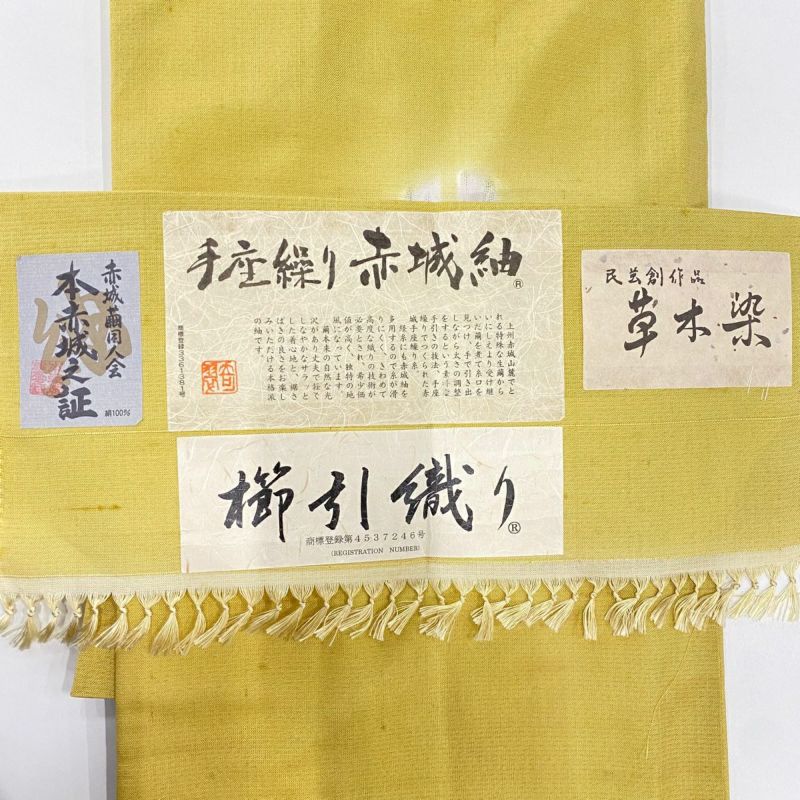 手座繰り赤城紬®
上州赤城山麓でと
れる特殊な生繭から
いにしえより受け継
いだ繭を煮て糸口を
見つけ、手で引き出
しながら太さの調整
をするという素朴な
手引きの技法、手座
繰りでつくられた赤
城手座繰り糸。
経糸にも赤城紬を
多用するので糸が滑
りにくく、きわめて
高度な織りの技術が
必要とされ、希少価
値が高く、独特の地
風になっています。
繭本来の自然な光
沢があり丈夫で軽で
しなやかなサラッと
した着心地と、裾さ
ばきの良さをお楽し
みいただける本格派
の紬です。
商標登録3361381号
赤城繭同人会
本赤城之証
絹100%
民芸創作品
草木染
櫛引織り®
商標登録第4537246号
(REGISTRATION NUMBER)